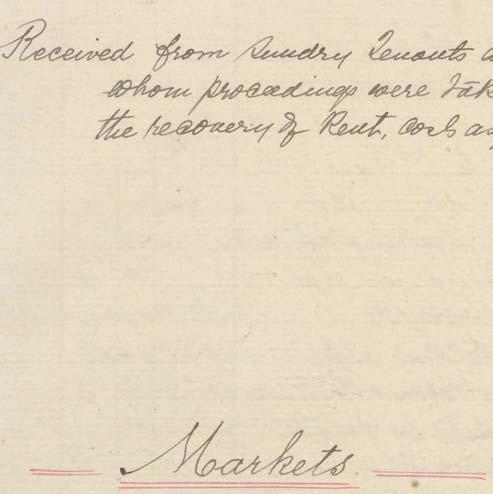 Received from Sundry Tenants a
whom proceedings were tak
the recovery of Rent, costs as
Markets.